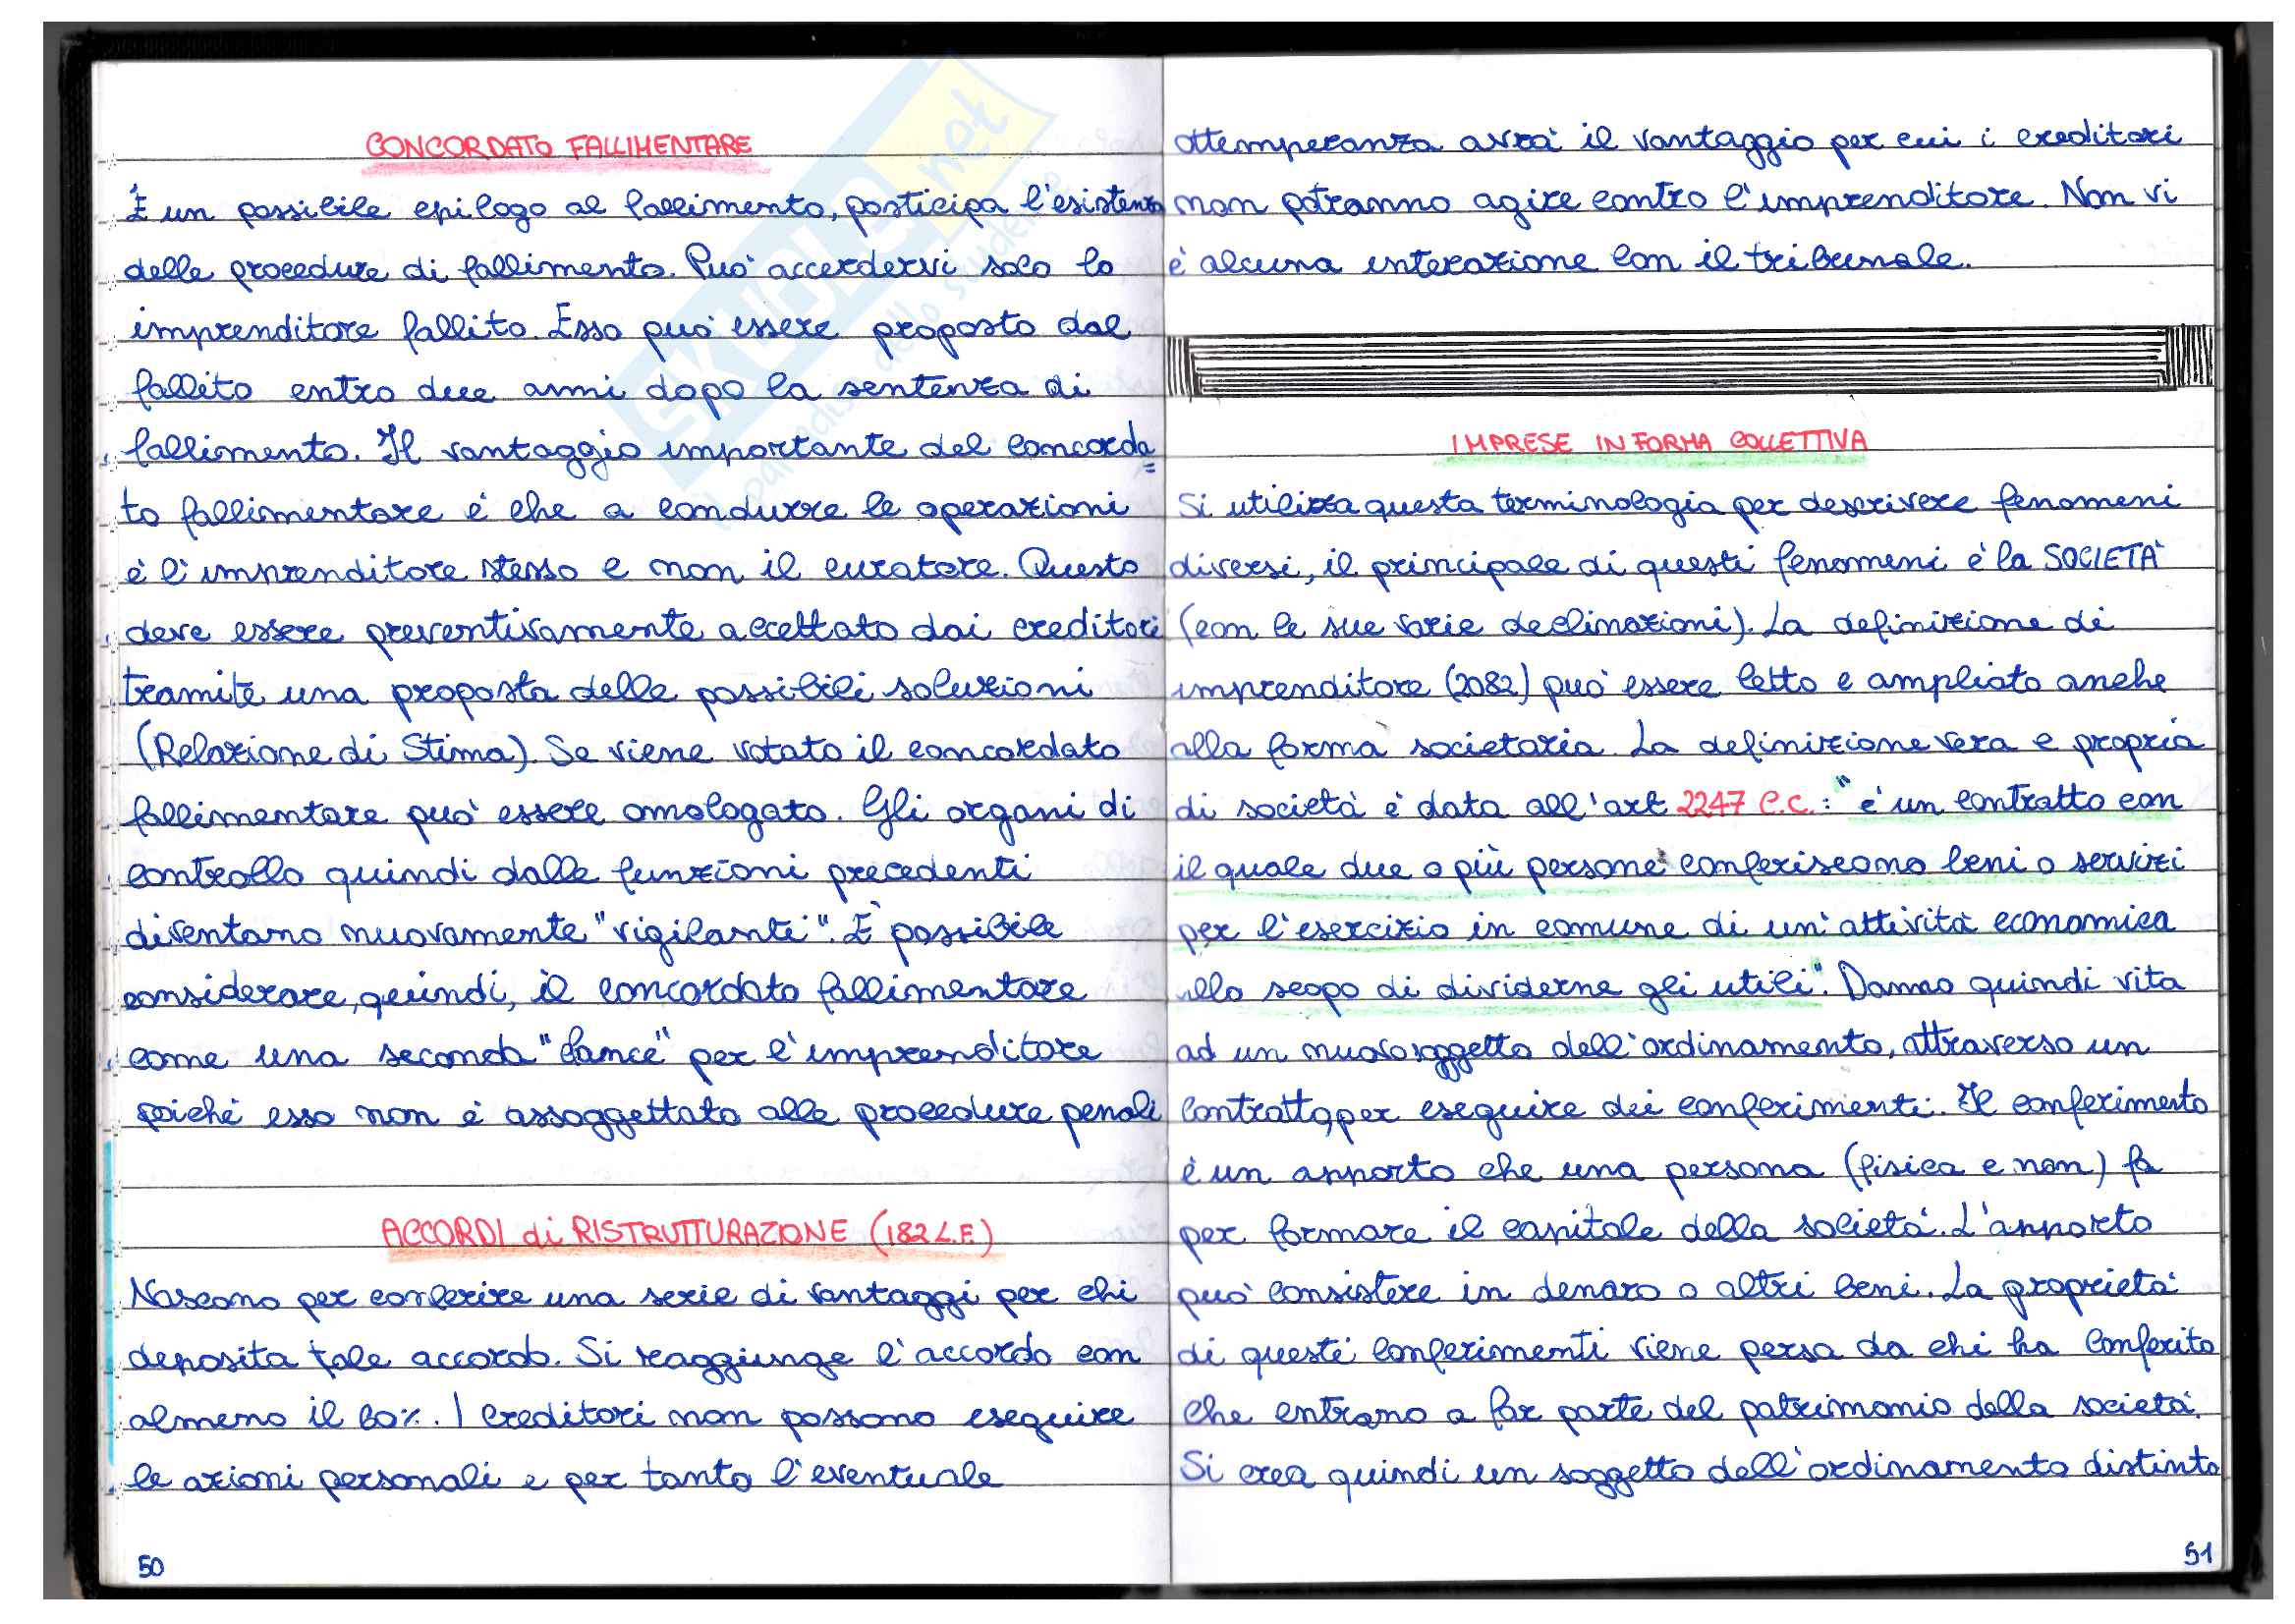 CONCORDATO FALLIMENTARE
È un possibile epilogo al fallimento, posticipa l'esistenza
delle procedure di fallimento. Puo' accerdervi solo lo
imprenditore fallito. Esso puo' essere proposto dal
fallito entro due anni dopo la sentenza di
fallimento. Il vantaggio importante del concorda=
to fallimentare é che a condurre le operazioni
è l'imprenditore stesso e non il curatore. Questo
deve essere preventivamente accettato dai creditori
tramite una proposta delle possibili soluzioni
(Relazione di Stima). Se viene votato il concordato
fallimentare puo' essere omologato. Gli organi di
controllo quindi dalle funzioni precedenti
diventano nuovamente "vigilanti". È possibile
considerare, quindi, il concordato fallimentare
come una seconda "Cance" per l'imprenditore
poiché esso non é assoggettato alle procedure penali
ACCORDI di RISTRUTTURAZIONE (182 L.F)
Nascono per conferire una serie di vantaggi per chi
deposita tale accordo. Si reaggiunge l'accordo con
almeno il 60%. I creditori non possono eseguire
le azioni personali e per tanto l'eventuale
50
ottemperanza avra' il vantaggio per cui i creditori
non potranno agire contro l'imprenditore. Non vi
è alcuna interazione con il tribunale.
IMPRESE IN FORMA COLLETTIVA
Si utilizza questa terminologia per descrivere fenomeni
diversi, il principale di questi fenomeni è la SOCIETA'
(con le sue varie declinazioni). La definizione di
imprenditore (2082) puo' essere letto e ampliato anche
alla forma societaria. La definizione vera e propria
di società è data all'art 2247 C.C.: "e' un contratto con
il quale due o più persone conferiscono beni o servizi
per l'esercizio in comune di un'attività economica
allo scopo di dividerne gli utili". Danno quindi vita
ad un nuovo soggetto dell'ordinamento, attraverso un
contratto, per eseguire dei conferimenti. Il conferimento
è un apporto che una persona (fisica e non) fa
per formare il capitale della societa'. L'apporto
puo' consistere in denaro o altri beni. La proprieta'
di questi conferimenti viene persa da chi ha conferito
che entrano a far parte del patrimonio della societa'.
Si crea quindi un soggetto dell'ordinamento distinto
51
SKUOLA.net
il paradiso dello studente